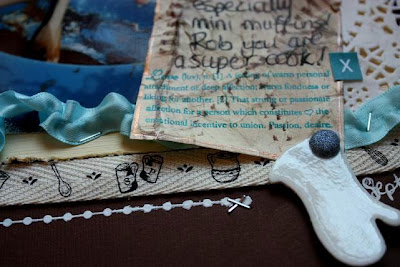 especially
mini muffins!
Rob you are
a super cook!
X
Love (luv) n: [1] A feeling of warm personal
attachment or deep affection, warm fondness or
liking for another. [2] That strong or passionate
affection for a person which constitutes the
emotional incentive to union. Passion, desire.
Sept